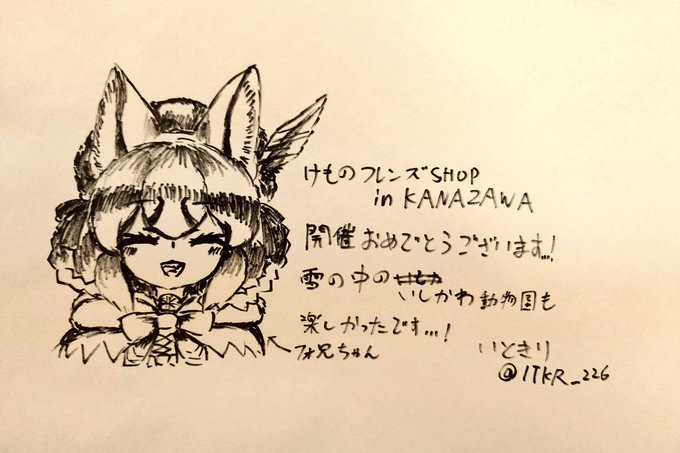 けものフレンズSHOP
in KANAZAWA
開催おめでとうございます…!
雪の中の
いしかわ動物園も
楽しかったです…!
←フォ兄ちゃん
いときり
@ITKR_226